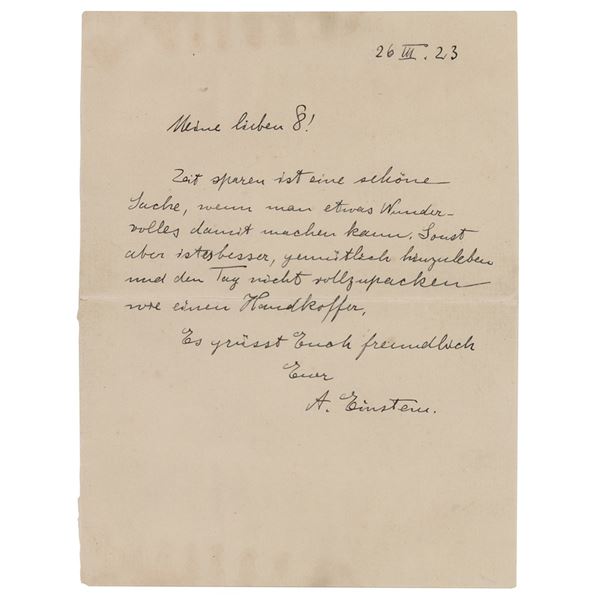 26 III. 23
Meine lieben 8!
Zeit sparen ist eine schöne
Sache, wenn man etwas Wunder-
volles damit machen kann. Sonst
aber ist es besser, gemütlich hinzuleben
und den Tag nicht vollzupacken
wie einen Handkoffer.
Es grüsst Euch freundlich
Euer
A. Einstein.